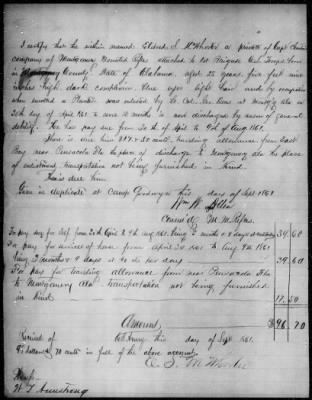 I certify that the within named Eldred S. McWhorter a private of Capt
company of Montgomery Mounted Rifles attached to 1st Brigade Ten. Troops born
in County State of Alabama, aged 22 years, five feet nine
inches high, dark complexion, blue eyes light hair and by occupation
when enlisted a Planter was enlisted by at Montg Ala on
20th day of Apl 1861 to serve 12 months is now discharged by reason of general
debility. He has pay due from 20th of Apl to 9th of Aug 1861.
There is due him traveling allowance from East
Bay near Pensacola Fla the place of discharge to Montgomery Ala the place
of enlistment, transportation not being furnished in kind.
Given in duplicate at Camp this day of Sept 1861
Wm W Allen
M. M. Rifles
For pay for self from 20th April to 9th Aug 1861, being 3 months & days at 34.68
For pay for service of horse from April 20 1861 to Aug 9th 1861
being 3 months & 9 days at 40 cts per day 39.60
For pay for traveling allowance from near Pensacola Fla
to Montgomery Ala transportation not being furnished
in kind
Amount
Received of this day of Sept 1861.
dollars 70 cents in full of the above account.
E. S. McWhorter
W T Armstrong